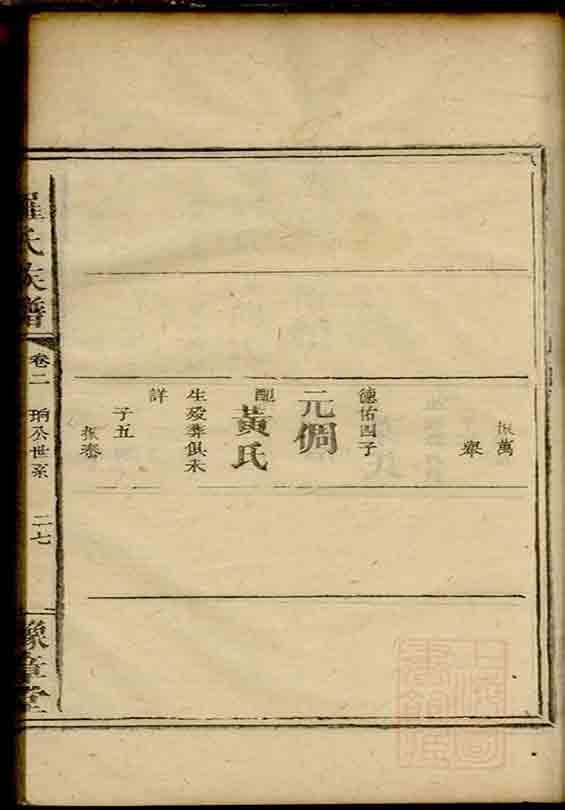 振萬
舉
德佑四子
元倜
配
黃氏
生殁葬俱未
詳
子五
振泰
羅氏族譜
卷二
珦公世系
二七
豫章堂